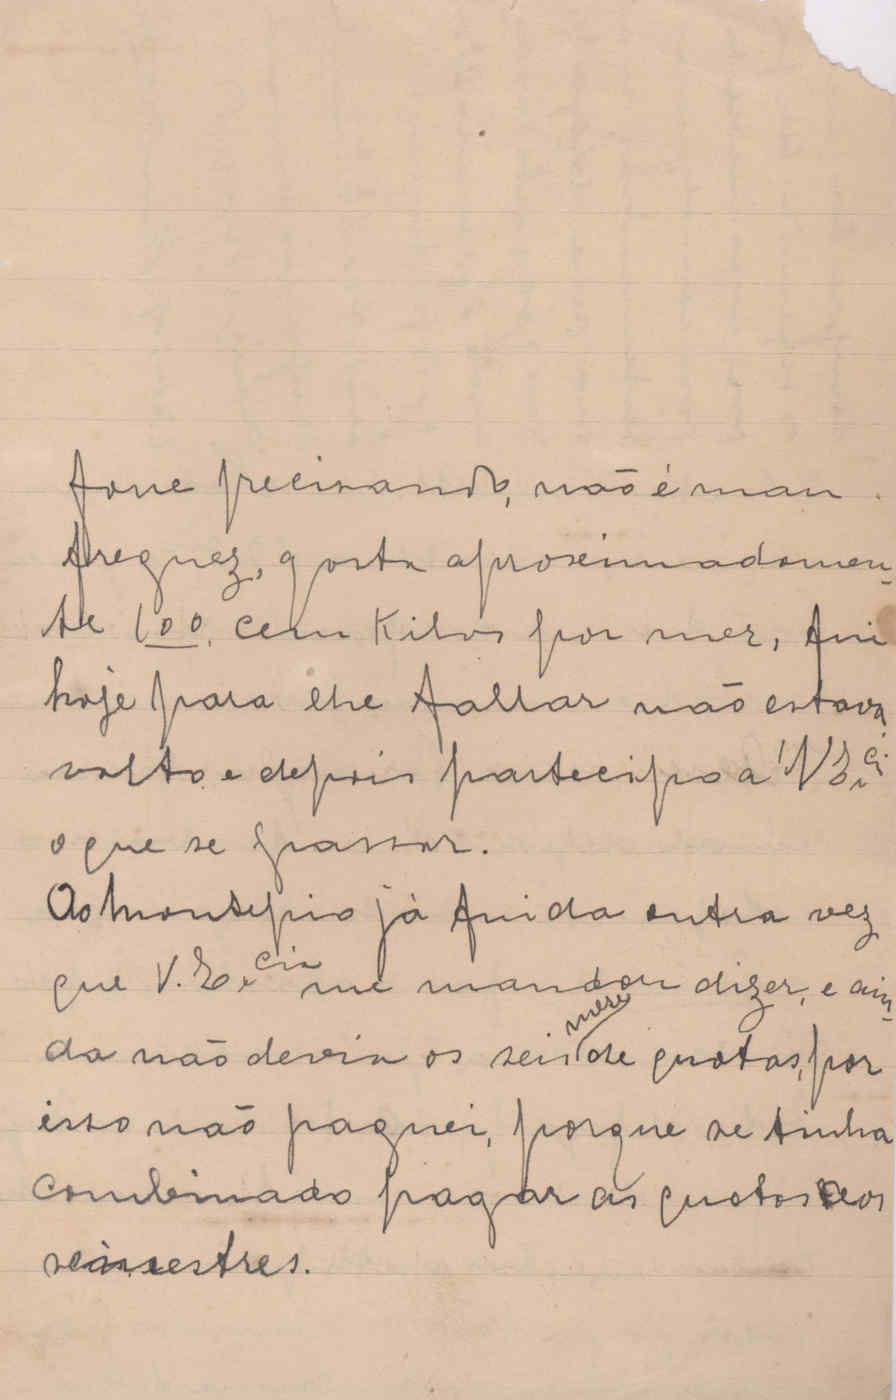 fone precisando, não é mau
freguez, gosta aproximadamen-
te 100, cem Kilos por mez, fui
hoje para lhe fallar não estava
volto e depois partecipo a V. E.cia
o que se passar.
Ao Montepio já fui da outra vez
que V. E.cia me mandou dizer, e ain-
da não devia os seis mese de quotas, por
isso não paguei, porque se tinha
combinado pagar as quotas aos
semestres.